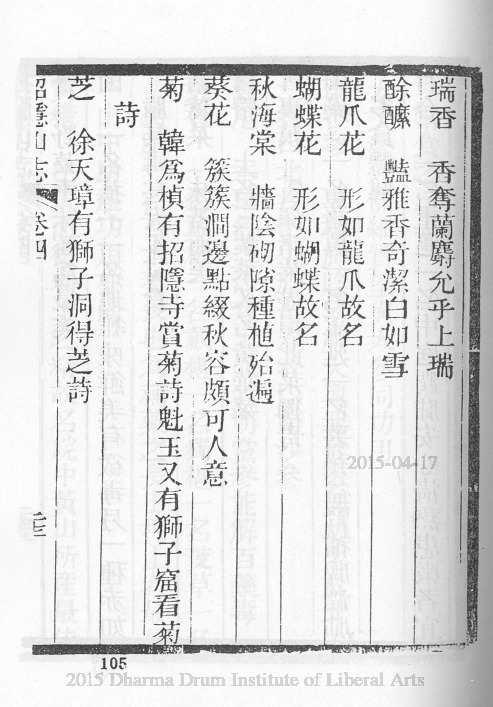 瑞香　香奪蘭麝允乎上瑞
酴醿　豔雅香奇潔白如雪
龍爪花　形如龍爪故名
蝴蝶花　形如蝴蝶故名
秋海棠　牆陰砌隙種植殆遍
葵花　簇簇澗邊點綴秋容頗可人意
菊　韓爲楨有招隱寺賞菊詩魁玉又有獅子窟看菊
詩
芝　徐天璋有獅子洞得芝詩
招隱山志　卷四　二三
105
2015-04-17
2015 Dharma Drum Institute of Liberal Arts